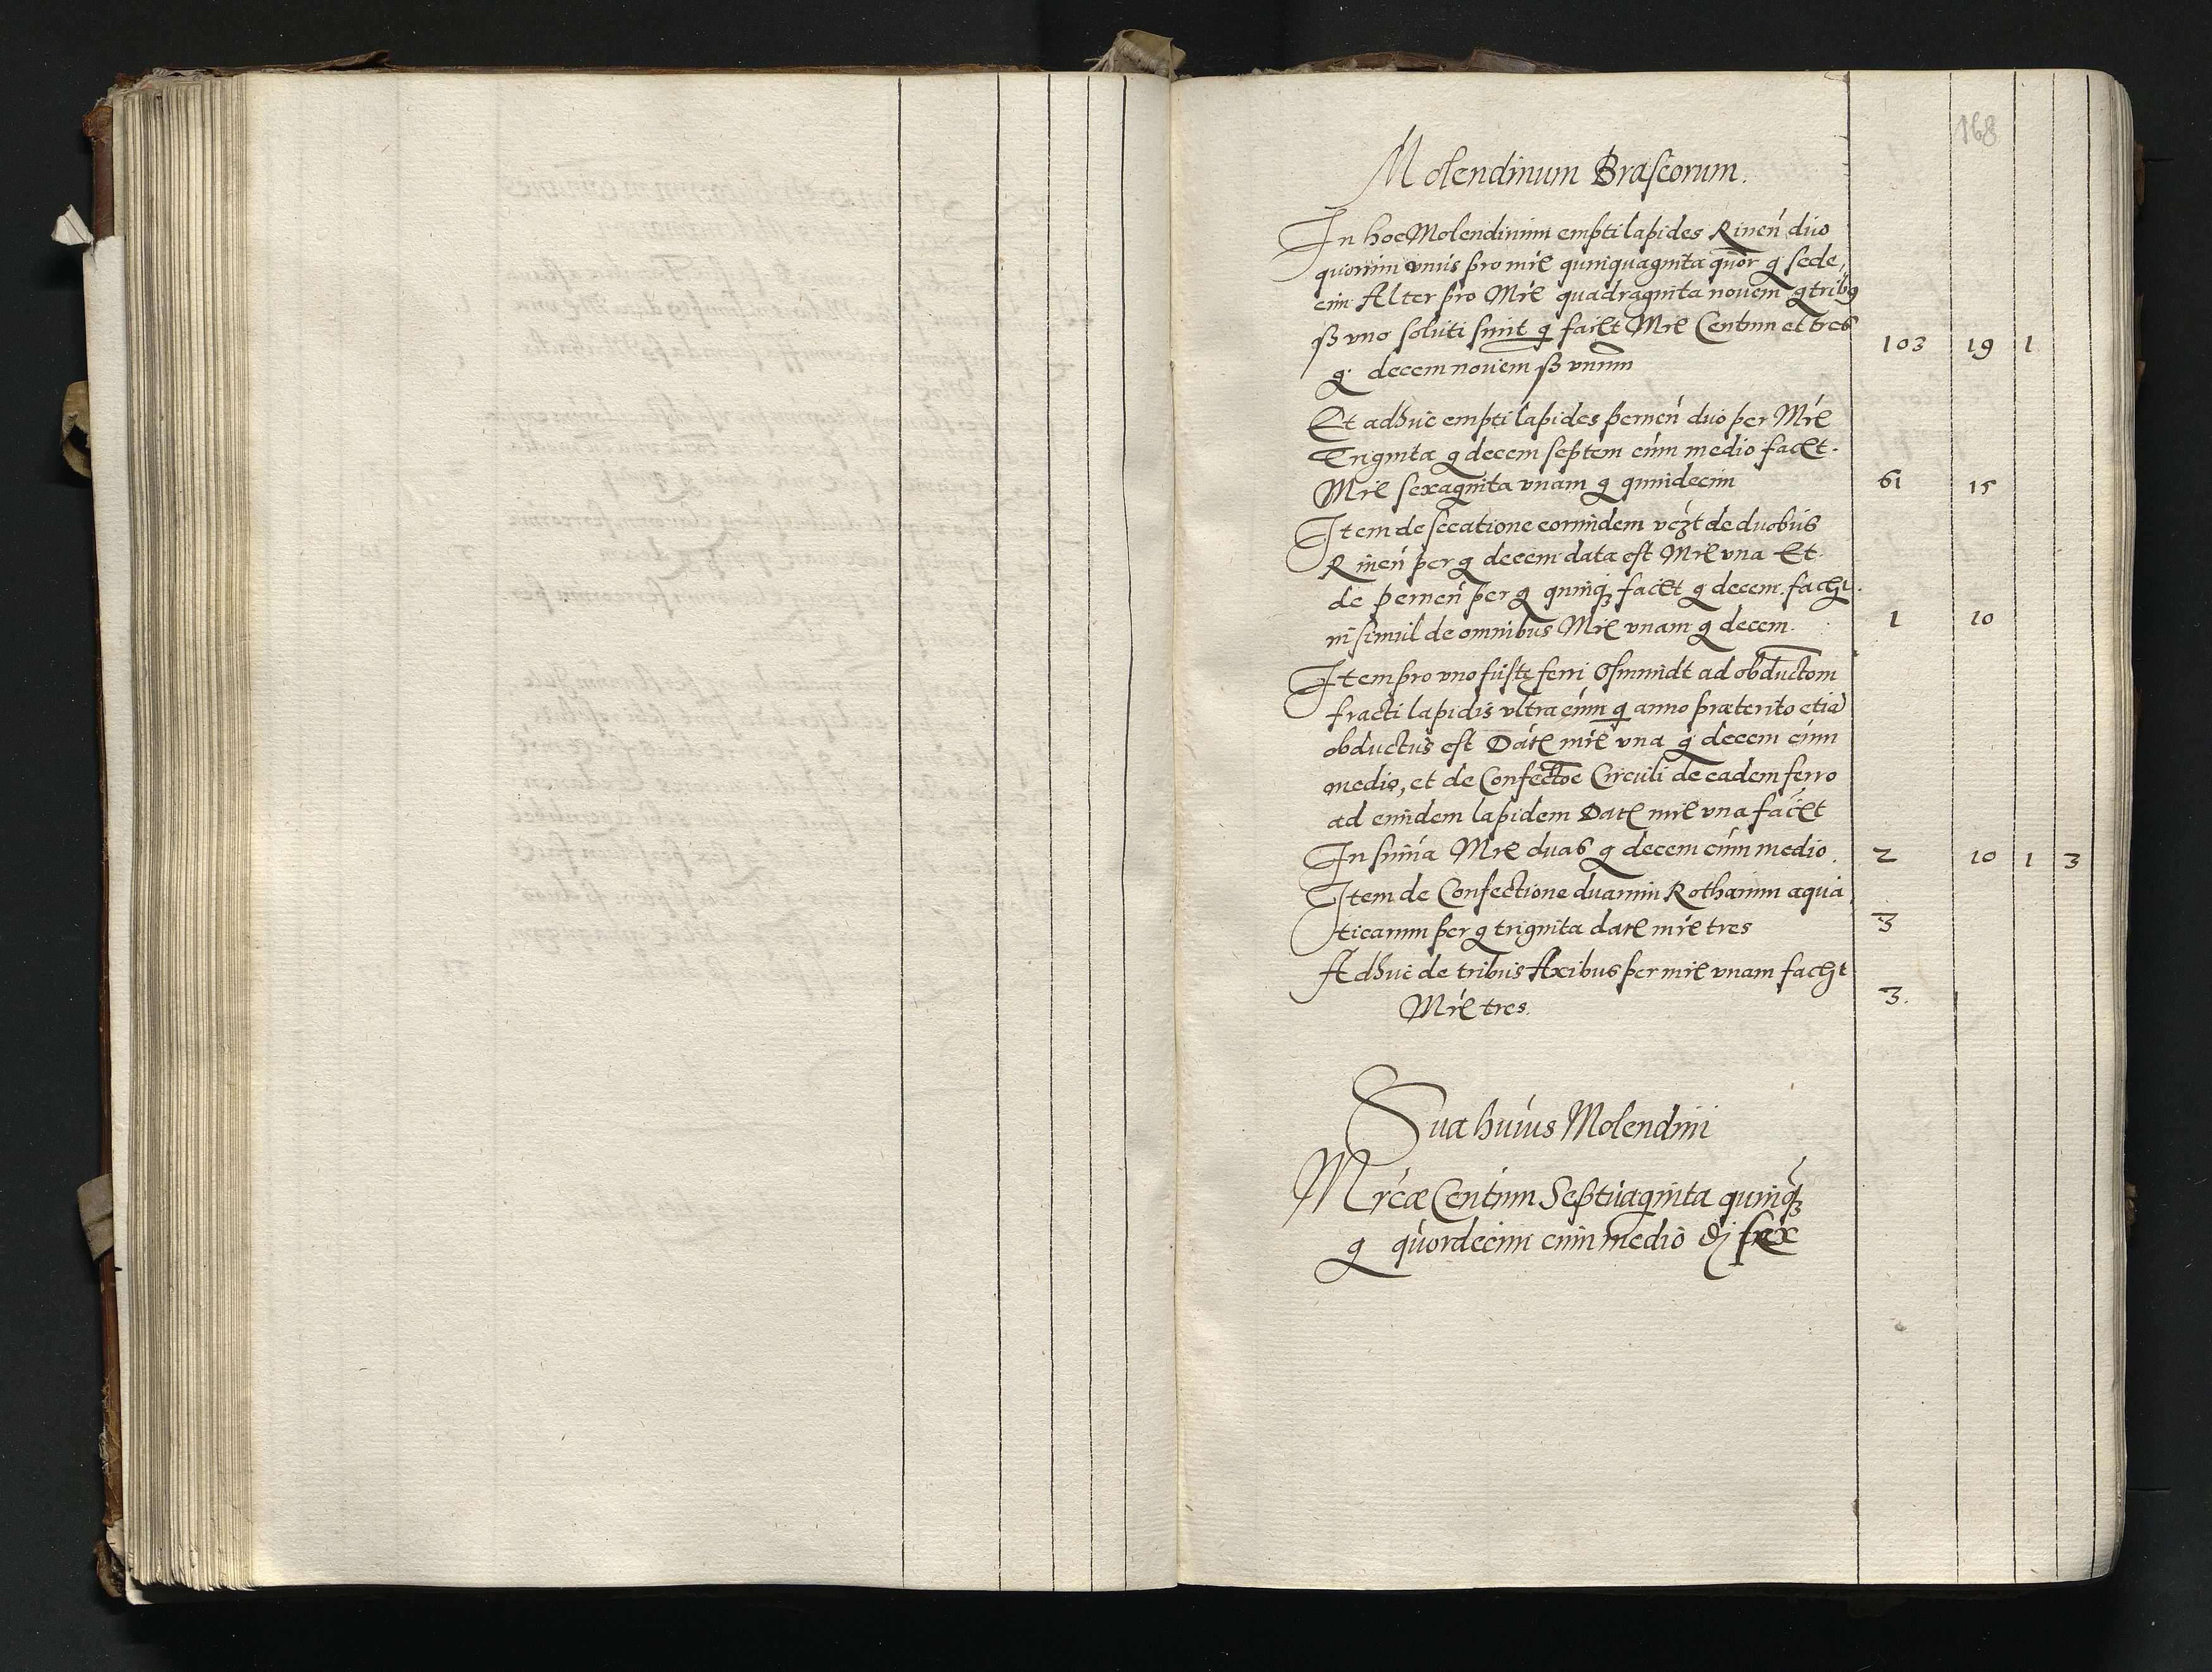 168
Molendinum Brascorum.
In hoc Molendinum empti lapides Rineń duo
quorum vnus pro mr̃e quinquaginta quor g sede,
cim Alter pro Mr̃e quadraginta novem g tribꝯ
ß vno soluti sunt g faciȩt Mr̃e Centum et tres
g decem novem ß vnum 103 19 1
Et adhuc empti lapides perneń duo per Mr̃e
Triginta g decem septem cum medio faciȩt.
Mr̃e sexaginta vnam g quindecim 61 15
Item de secatione eorundem vczt de duobus
Rineń per g decem data est Mr̃e vna Et
de perneń per g quinqꝫ faciȩt g decem. facȩt
in simul de omnibus Mr̃e vnam g decem. 1 10
Item pro vno fuste ferri Osmundt ad obductom
fracti lapidis vltra cum q anno præterito etiã
obductus est Datȩ mr̃e vna g decem cum
medio, et de Confectoe Circuli de eadem ferro
ad eundem lapidem Datȩ mr̃e vna faciȩt
In suma Mr̃e duas g decem cum medio. 2 10 1 3
Item de Confectione duarum Rotharum aqua,
ticarum per g triginta datȩ mr̃e tres 3
Adhuc de tribus Axibus per mr̃e vnam facȩt
Mr̃e tres. 3.
Sua huius Molendini
Mrcæ Centum Septuaginta quinqꝫ
g quordecim cum medio ₰ sex